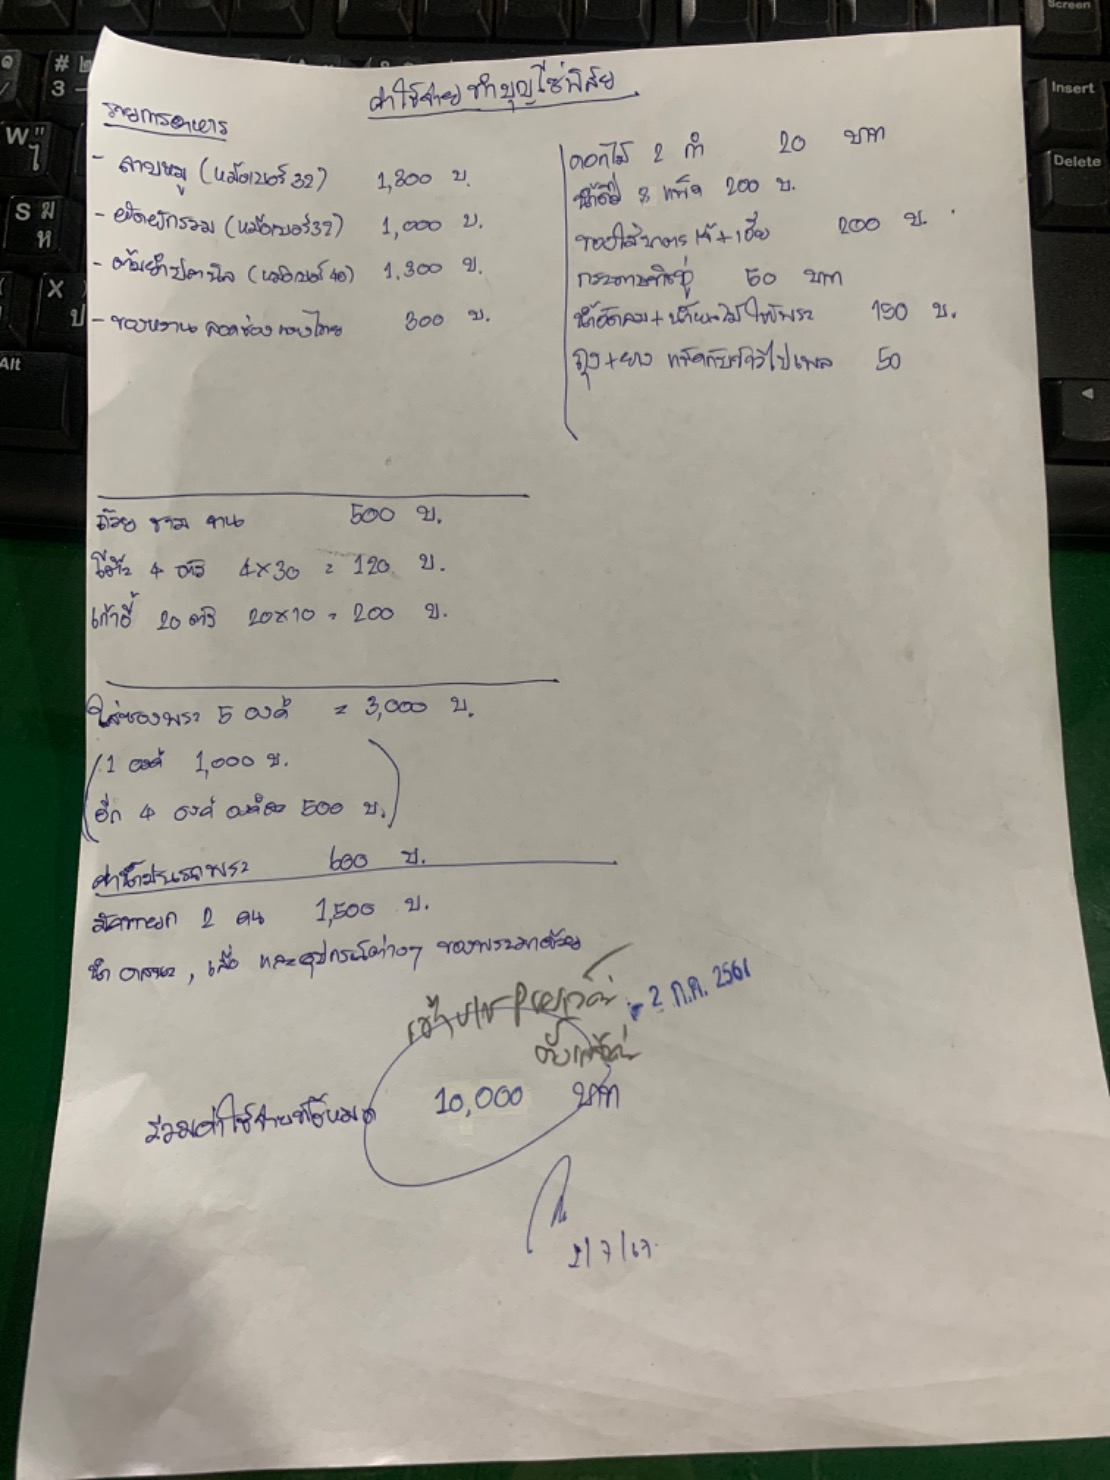 ค่าใช้จ่ายทำบุญไซ่พิสัย
รายการอาหาร
- ลาบหมู (หม้อเบอร์ 32) 1,800 บ.
- ผัดผักรวม (หม้อเบอร์ 32) 1,000 บ.
- ต้มยำปลานิล (หม้อเบอร์ 40) 1,300 บ.
- ของหวาน ลอดช่อง 300 บ.
ดอกไม้ 2 กำ 20 บาท
น้ำดื่ม 8 แพ็ค 200 บ.
ของใส่บาตร 200 บ.
กระดาษทิชชู่ 50 บาท
น้ำอัดลม + น้ำผลไม้ให้พระ 150 บ.
ถุง + ยาง 50
ถ้วย ชาม จาน 500 บ.
โต๊ะ 4 ตัว 4x30 = 120 บ.
เก้าอี้ 20 ตัว 20x10 = 200 บ.
ใส่ซองพระ 5 องค์ = 3,000 บ.
(1 องค์ 1,000 บ.
อีก 4 องค์ องค์ละ 500 บ.)
ค่าน้ำมันรถพระ 600 บ.
มัคทายก 2 คน 1,500 บ.
นำ อาสนะ, เสื่อ และอุปกรณ์ต่างๆ ของพระมาด้วย
2 ก.ค. 2567
รวมค่าใช้จ่ายทั้งหมด 10,000 บาท
2/7/67.